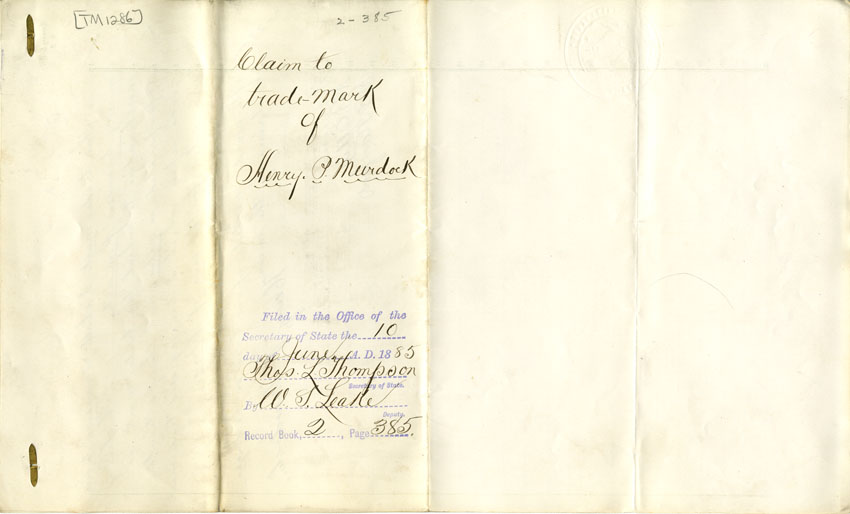 [TM1286]
2-385
Claim to
trade-mark
of
Henry. P. Murdock
Filed in the Office of the
Secretary of State the 10
day of June A. D. 1885
Thos. L Thompson
Secretary of State.
By W. T. Leake
Deputy.
Record Book, 2, Page 385.